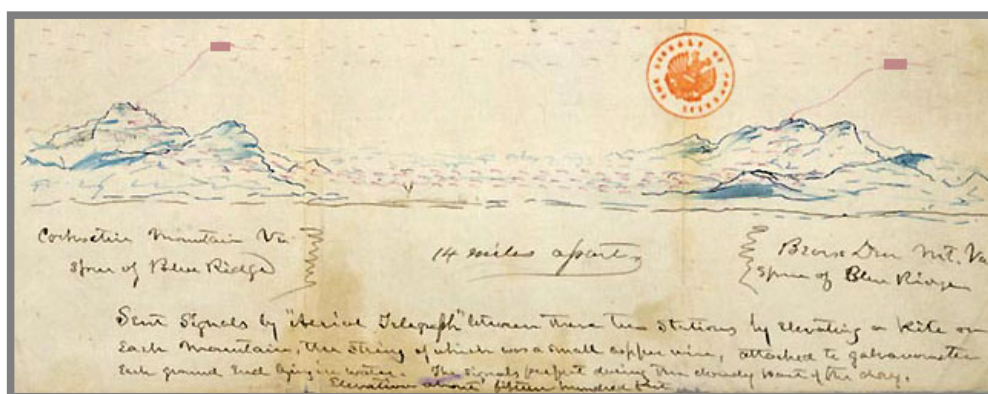 THE LIBRARY OF CONGRESS
Mountain Va.
Spur of Blue Ridge
14 miles apart
Bears Den Mt. Va
Spur of Blue Ridge
Sent Signals by "Aerial Telegraph" between these two stations by elevating a Kite on
Each Mountain, the string of which was a small copper wire, attached to galvanometer
Each ground End lying in water. The signals perfect during the cloudy part of the day.
Elevations about fifteen hundred feet